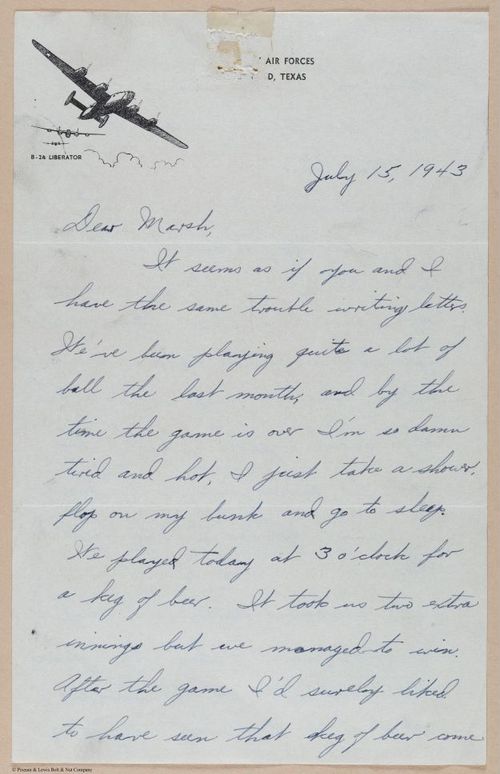 AIR FORCES
D, TEXAS
B-24 LIBERATOR
July 15, 1943
Dear Marsh,
It seems as if you and I
have the same trouble writing letters.
We've been playing quite a lot of
ball the last month, and by the
time the game is over I'm so damn
tired and hot, I just take a shower,
flop on my bunk and go to sleep.
We played today at 3 o'clock for
a keg of beer. It took us two extra
innings but we managed to win.
After the game I'd surely liked
to have seen that keg of beer come
© Pioneer & Lewis Bolt & Nut Company